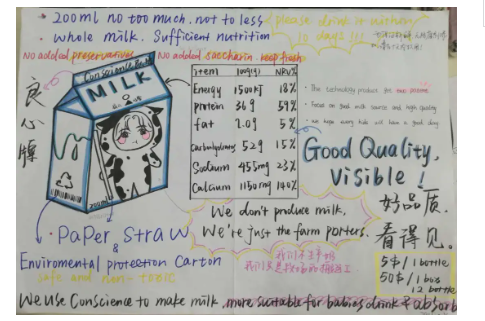 200ml no too much. not to less
please drink it within
10 days!!!
whole milk. Sufficient nutrition
NO added preservatives
NO added saccharin keep fresh
良心牌
Conscience
MILK
200ml
item 100(g) NRV%
Energy 1500KJ 18%
protein 36g 59%
fat 2.0g 5%
Carbohydrates 52g 15%
Sodium 455mg 23%
Calcium 1150mg 140%
This technology product for
Focus on good milk source and high quality
we hope every kids will have a good day
Good Quality,
Visible!
好品质.
看得见。
We don't produce milk,
We're just the farm porters.
我们不生产奶
我们只是
Paper Straw
&
Enviromental protection Carton
safe and non-toxic
5$/1 bottle
50$/1 box
12 bottle
We Use Conscience to make milk, more suitable for babies drink & absorb